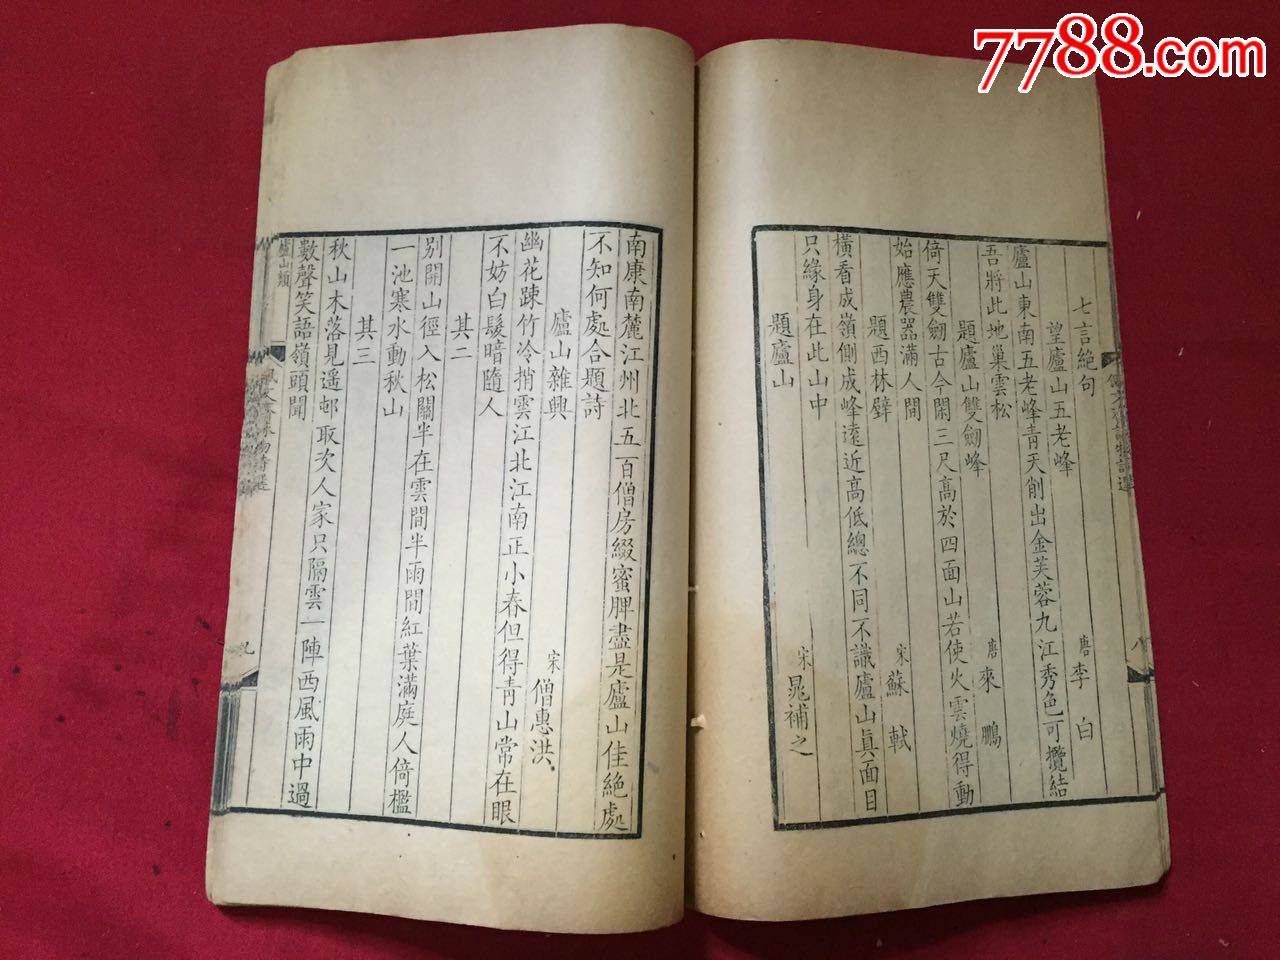 7788.com
七言絕句
望廬山五老峰
唐李白
廬山東南五老峰青天削出金芙蓉九江秀色可攬結
吾將此地巢雲松
題廬山雙劒峰
唐來鵬
倚天雙劒古今閑三尺高於四面山若使火雲燒得動
始應農器滿人間
題西林壁
宋蘇軾
橫看成嶺側成峰遠近高低總不同不識廬山眞面目
只緣身在此山中
題廬山
宋晁補之
南康南麓江州北五百僧房綴蜜脾盡是廬山佳絕處
不知何處合題詩
廬山雜興
宋僧惠洪
幽花踈竹冷捎雲江北江南正小春但得青山常在眼
不妨白髮暗隨人
其二
別開山徑入松關半在雲間半雨間紅葉滿庭人倚檻
一池寒水動秋山
其三
秋山木落見遥邨取次人家只隔雲一陣西風雨中過
數聲笑語嶺頭聞
廬山類
九
八